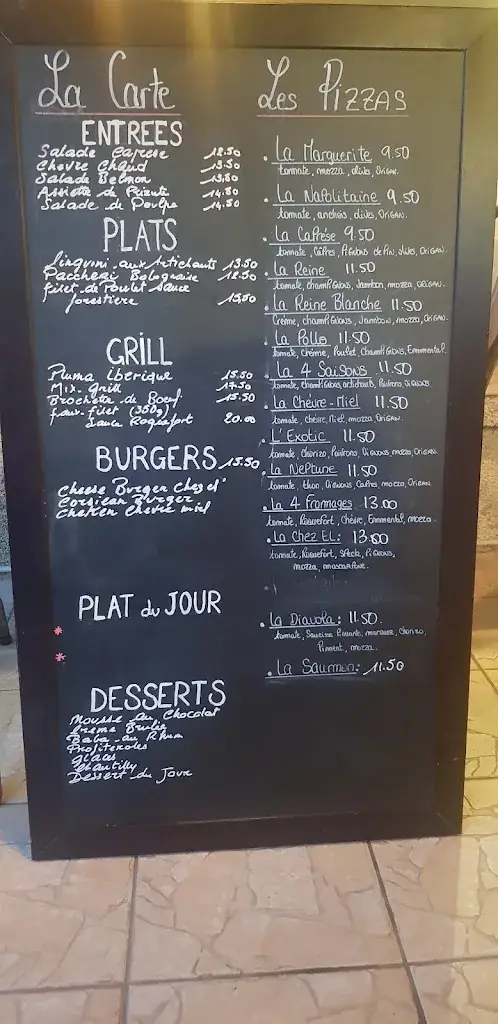 La Carte
ENTREES
Salade Caprese 12.50
Chevre Chaud 13.50
Salade Belmon 13.50
Assiette de 14.50
Salade de Poulpe 14.50
PLATS
Linguini aux Artichauts 13.50
Paccheri Bolognaise 12.50
filet de Poulet Sauce
forestiere 15,50
GRILL
Puma iberique 15.50
Mix. Grill 17.50
Brochette de Boeuf 15.50
faux. filet (350g)
Sauce Roquefort 20.00
BURGERS 15.50
Cheese Burger Chez el
Corsican Burger
Chicken chevre miel
PLAT du JOUR
*
*
DESSERTS
Mousse au Chocolat
Creme Brulée
Baba au Rhum
Profiteroles
Glaces
Chantilly
Dessert du Jour
Les PIZZAS
. La Marguerite 9.50
tomate, mozza, olives, Origan.
. La Napolitaine 9.50
tomate, anchois, olives, Origan.
. La Caprése 9.50
tomate, Câpres, Pignons de Pin, olives, Origan.
. La Reine 11.50
tomate, champignons, Jambon, mozza, origan.
. La Reine Blanche 11.50
Crème, champignons, Jambon, mozza, Origan.
. La Pollo 11.50
tomate, Crème, Poulet, Champignons, Emmental.
. La 4 Saisons 11.50
tomate, champignons, artichauts, Poivrons, oignons
. La Chèvre-Miel 11.50
tomate, chèvre, Miel, mozza, Origan.
. L'Exotic 11.50
tomate, Chorizo, Poivrons, Oignons, mozza, Origan.
. La Neptune 11.50
tomate, thon, Oignons, Câpres, mozza, Origan.
. La 4 Fromages 13.00
tomate, Roquefort, Chèvre, Emmental, mozza.
. La Chez EL: 13.00
tomate, Roquefort, Speck, Pignons,
mozza, mascarpone.
. La Diavola: 11.50.
tomate, Saucisse Piquante, merguez, Chorizo,
Piment, mozza.
. La Saumon: 11.50